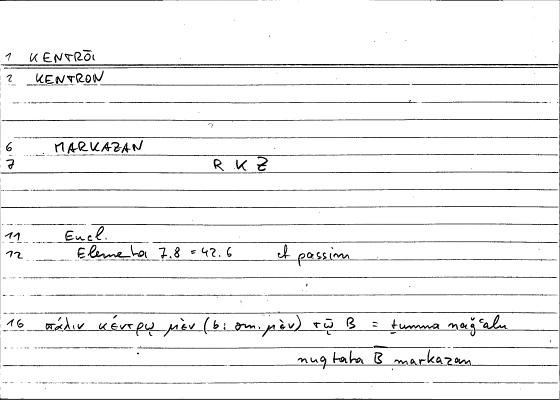 1 KENTRŌI
2 KENTRON
6 MARKAZAN
7 R K Z
11 Eucl.
12 Elementa 7.8 = 42.6 et passim
16 πάλιν κέντρῳ μὲν (b: om. μὲν) τῷ B = ṯumma naǧʿalu
nuqṭata B̅ markazan